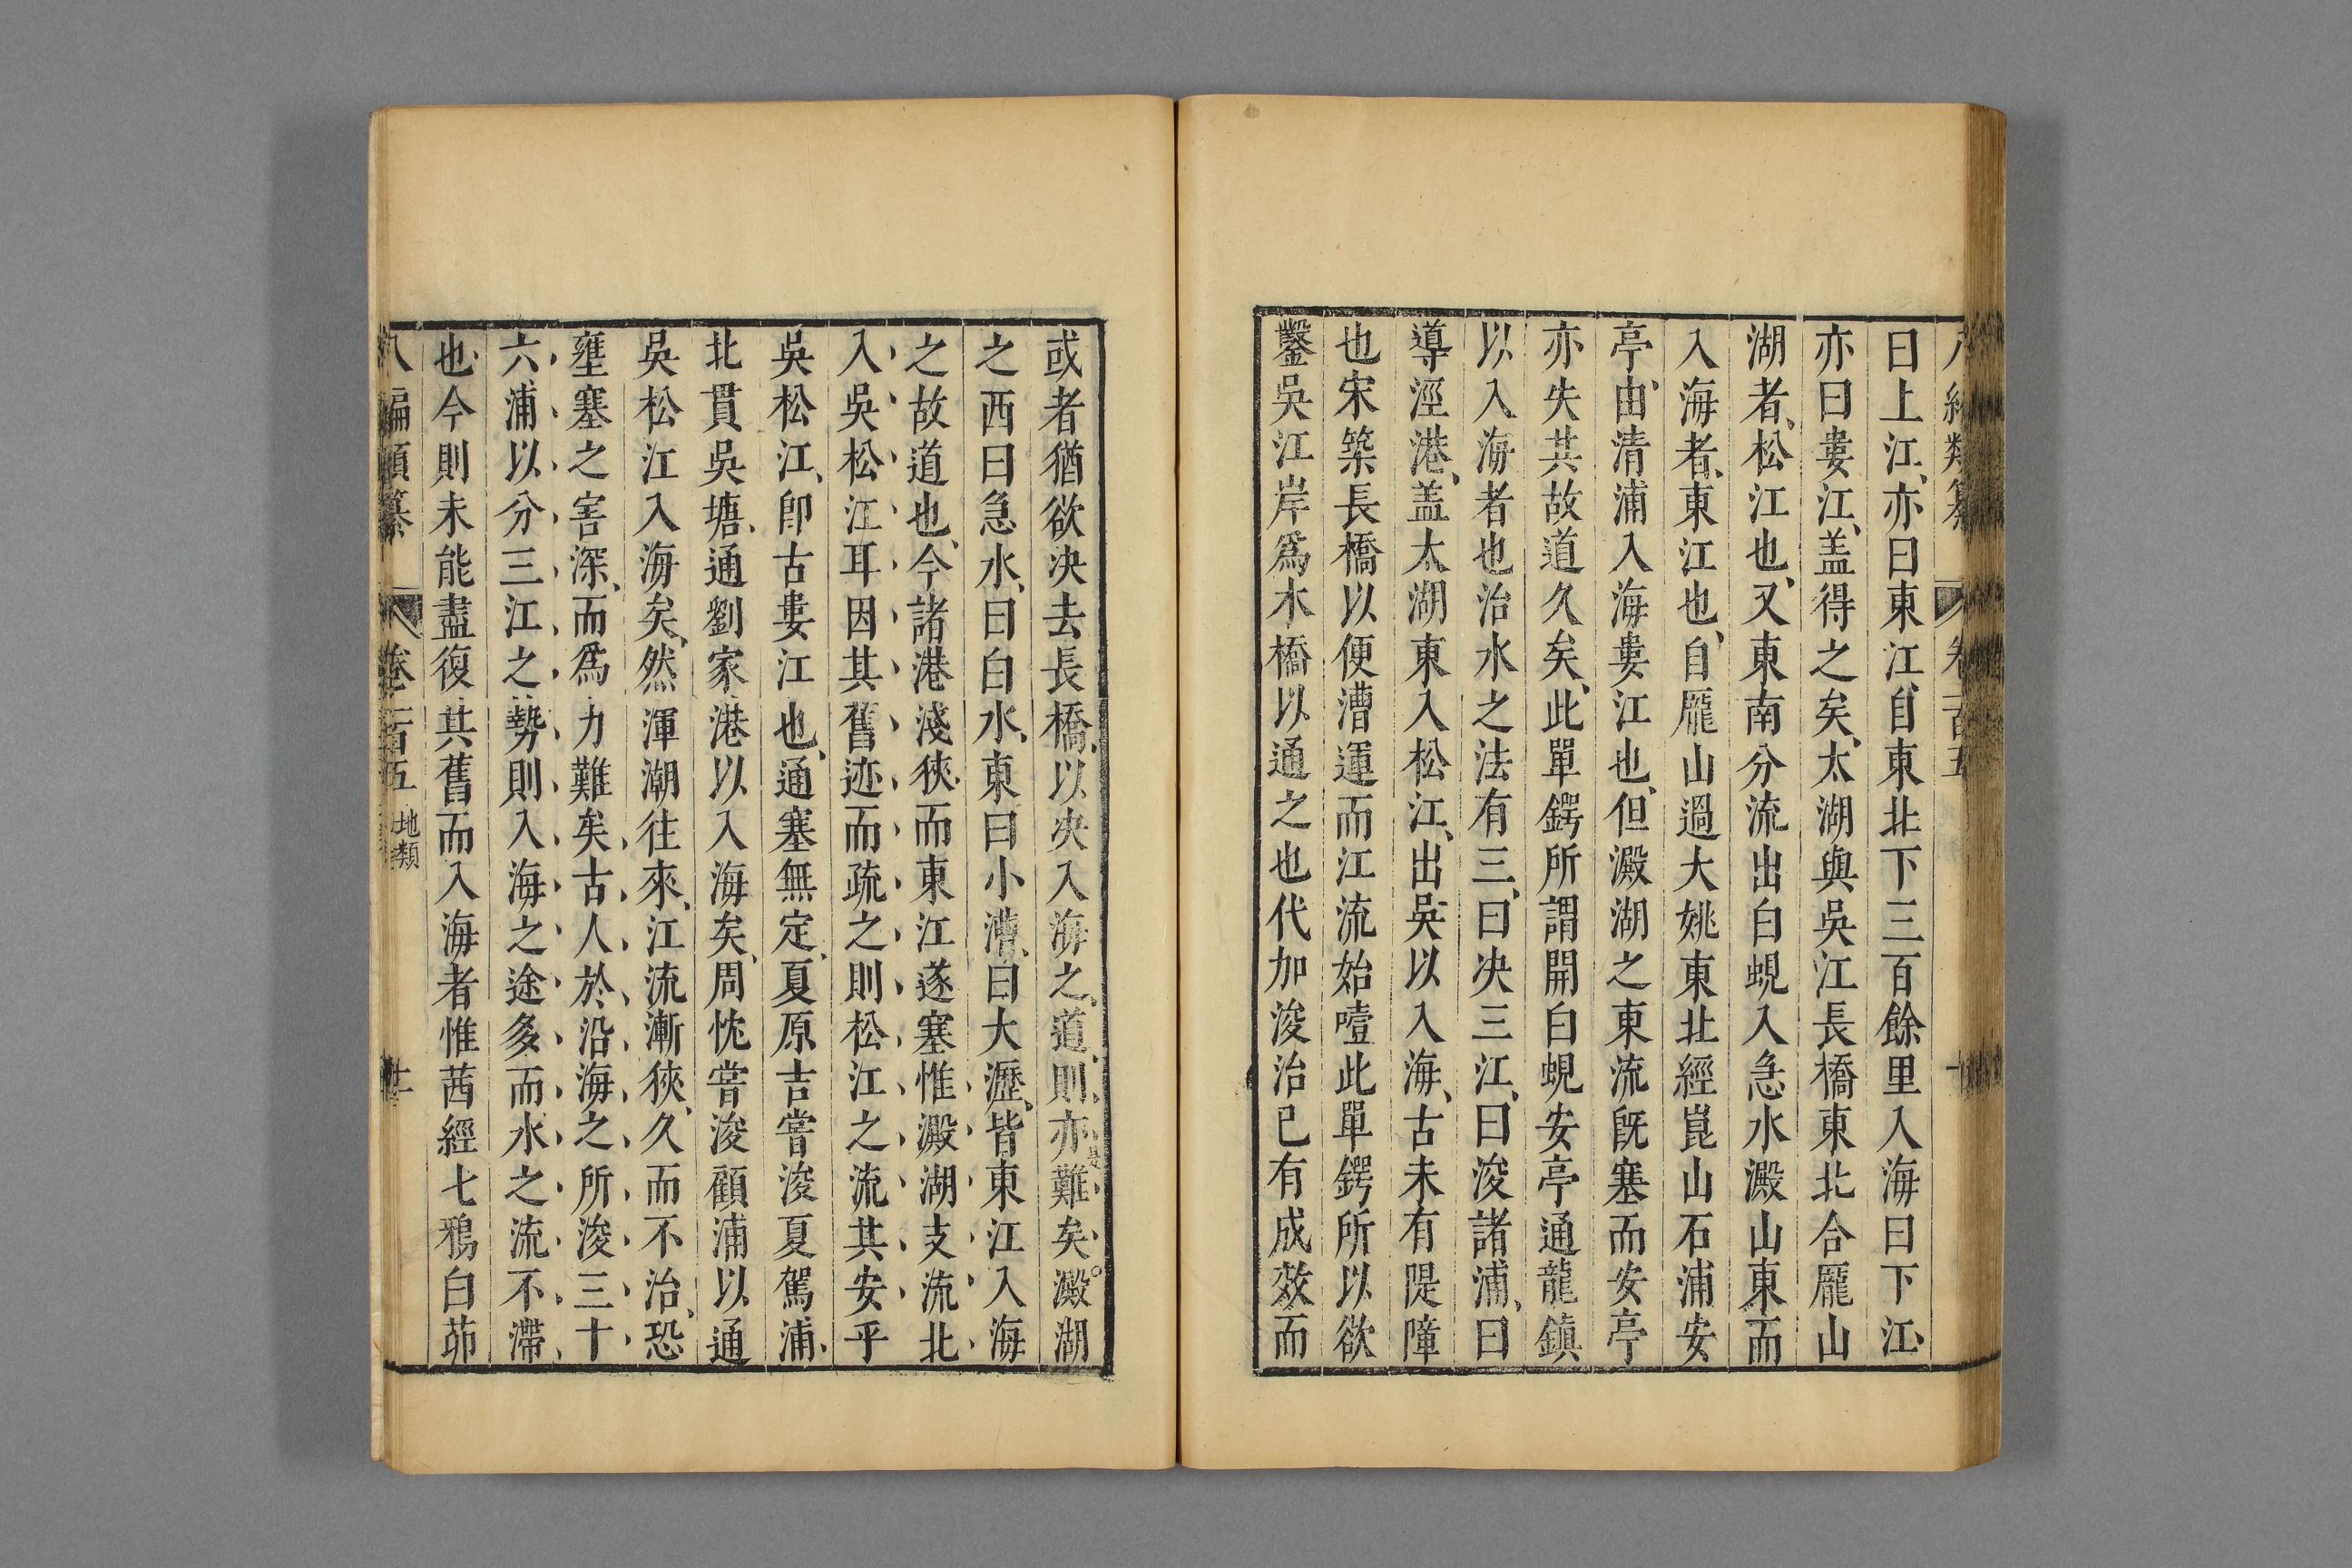 曰上江、亦曰東江、自東北下三百餘里入海曰下江、
亦曰婁江、盖得之矣、太湖與吳江長橋東北合龐山
湖者、松江也、又東南分流出白蜆入急水澱山東而
入海者、東江也、自龐山過大姚東北經崑山石浦安
亭、由清浦入海婁江也、但澱湖之東流旣塞而安亭
亦失其故道久矣、此單鍔所謂開白蜆安亭通龍鎮
以入海者也治水之法有三、曰决三江、曰浚諸浦、曰
導涇港、盖太湖東入松江、出吳以入海、古未有隄障
也宋築長橋以便漕運而江流始噎此單鍔所以欲
鑿吳江岸爲木橋以通之也代加浚治已有成效而
或者猶欲决去長橋、以决入海之、道、則、亦難矣、澱湖
之西曰急水、曰白水、東曰小漕、曰大瀝、皆東江入海
之故道也、今諸港淺狹、而東江遂塞惟澱湖支流北
入吳松江耳因其舊迹而疏之則松江之流其安乎
吳松江、卽古婁江也、通塞無定、夏原吉嘗浚夏駕浦、
北貫吳塘、通劉家港以入海矣、周忱嘗浚顧浦以通
吳松江入海矣、然渾潮往來、江流漸狹、久而不治、恐
壅塞之害深、而爲力難矣古人於沿海之所浚三十
六浦以分三江之勢則入海之途多而水之流不滯
也今則未能盡復其舊而入海者惟茜經七鴉白茆
八編類纂 卷一百五 地類 十一